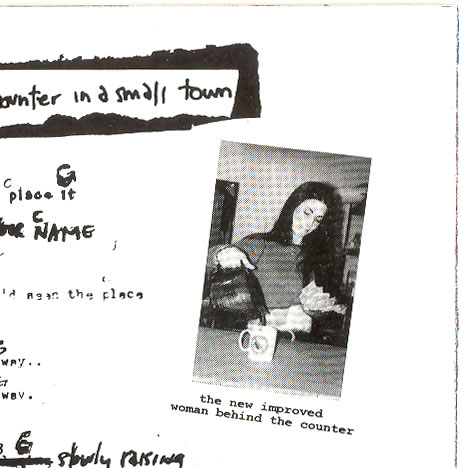 ounter in a small town
C G
place it
E
NAME
'd mean the place
way..
G
way.
the new improved
woman behind the counter
G slowly raising